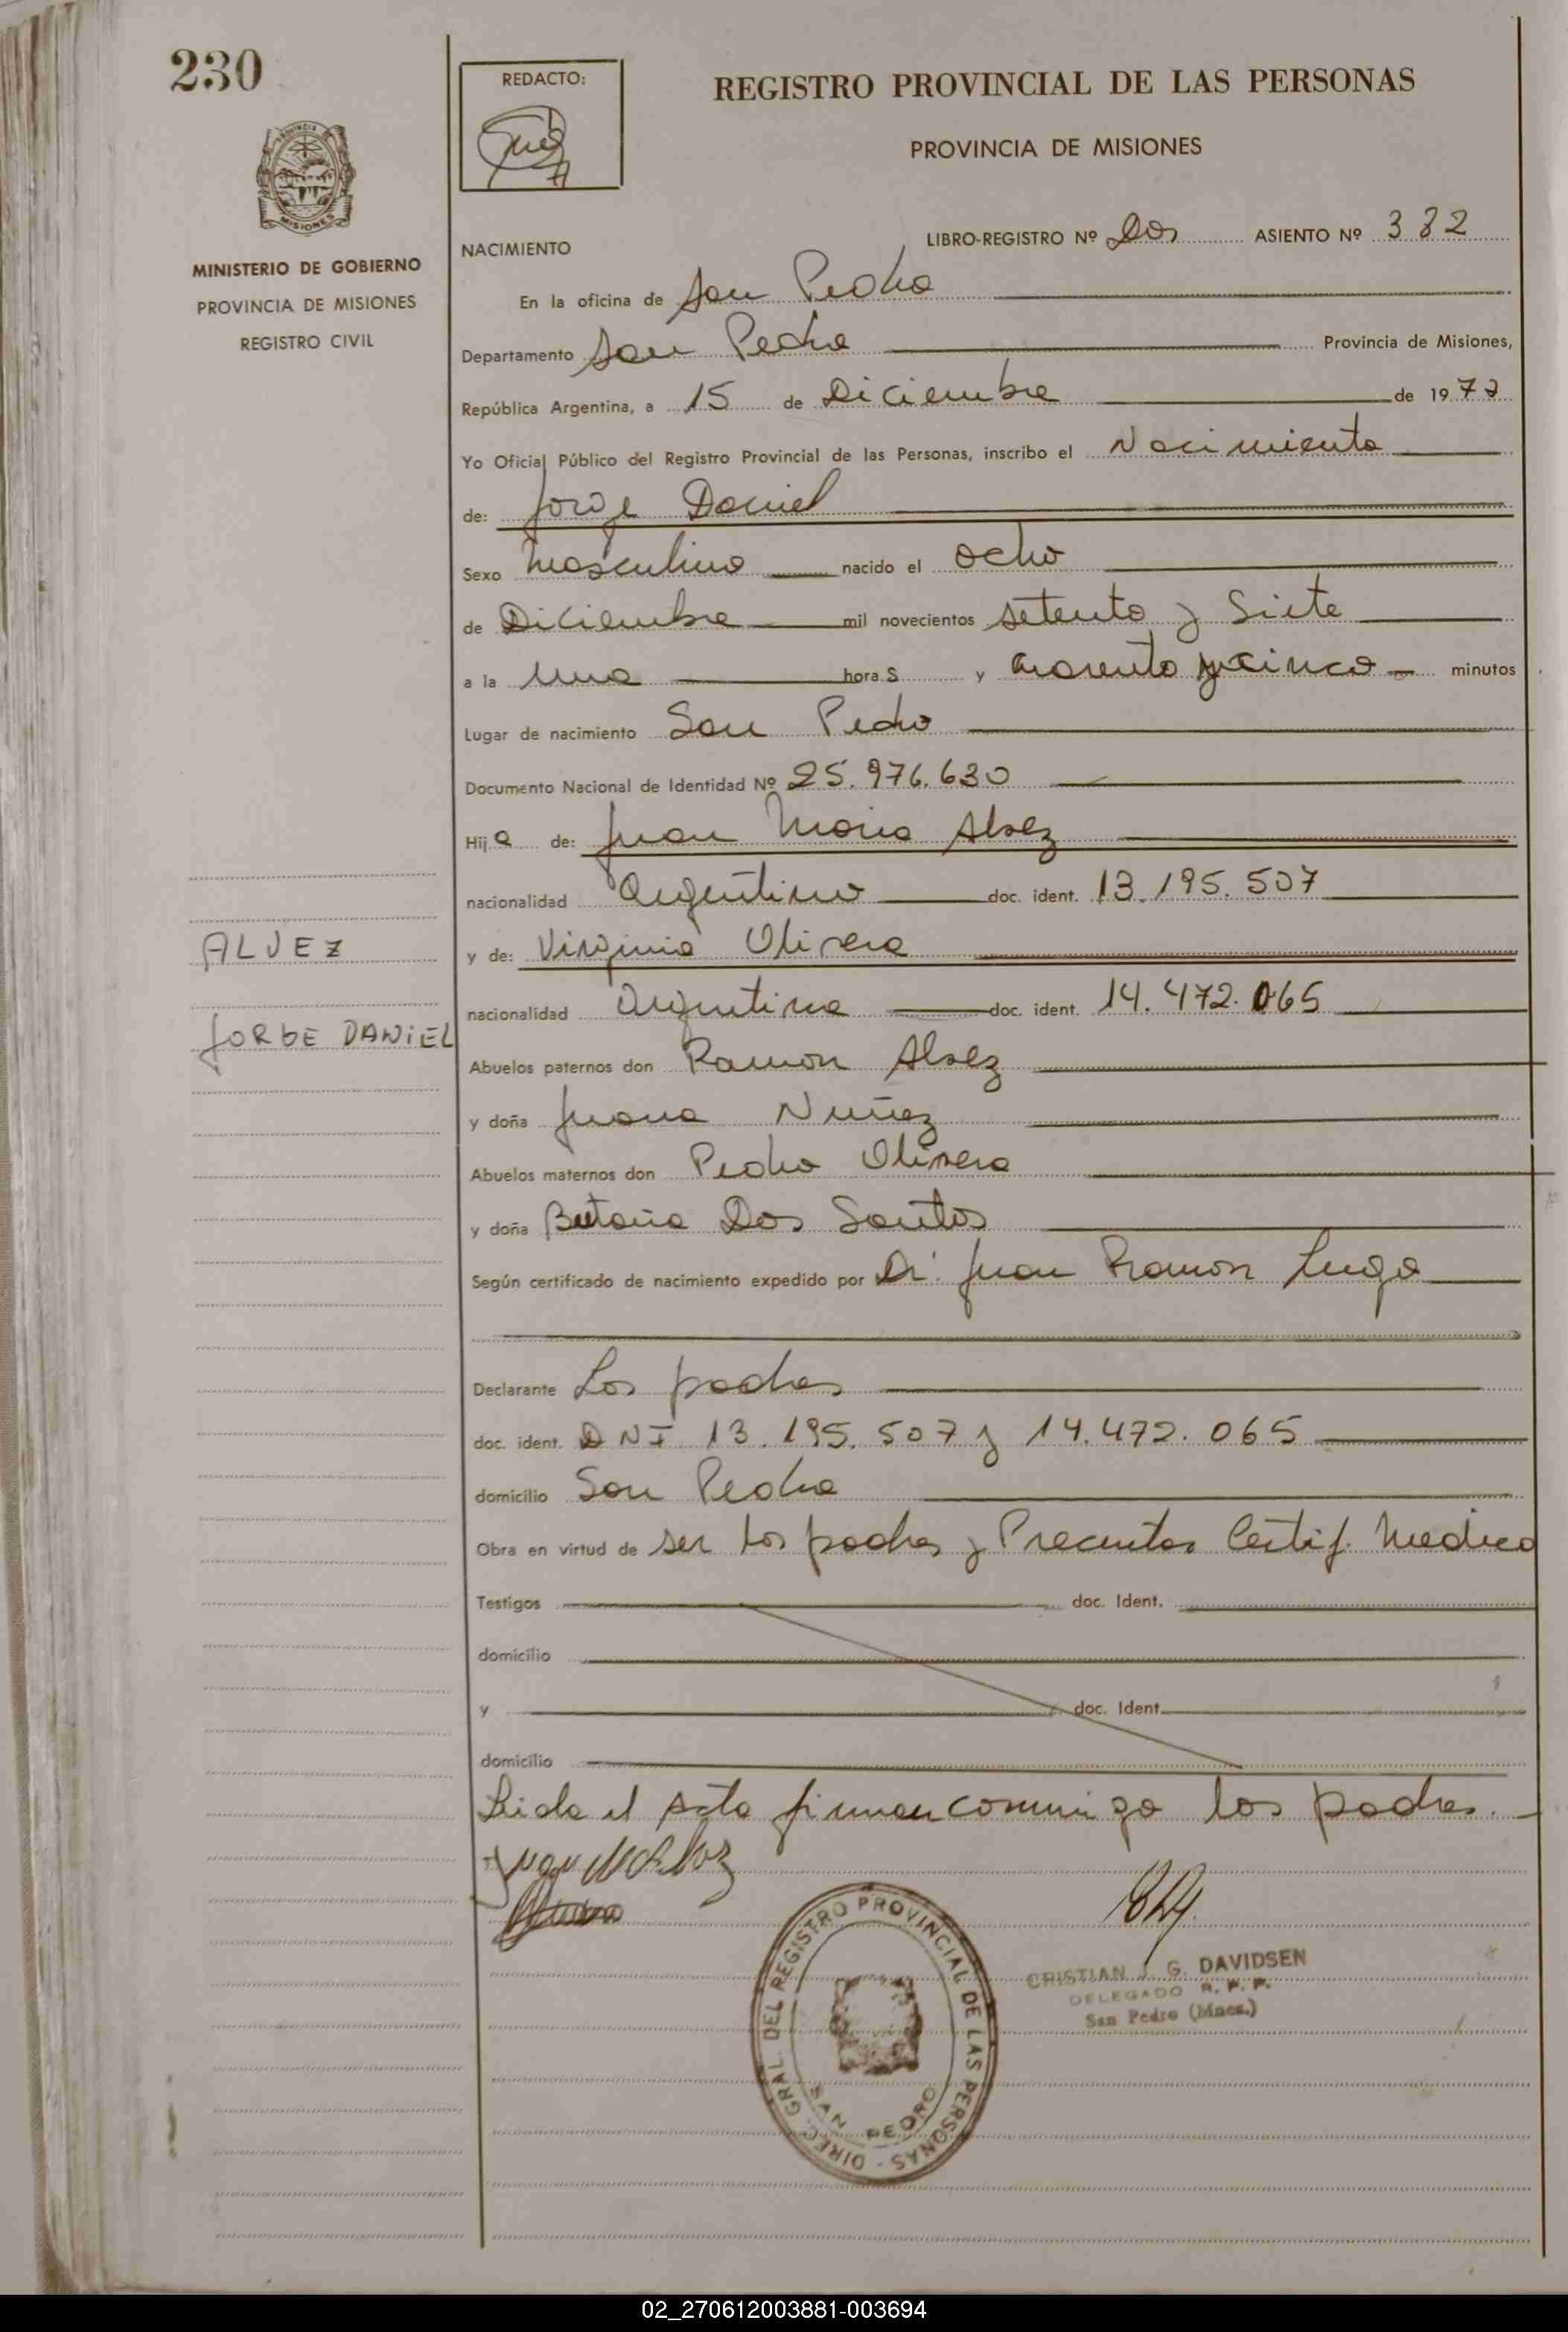 230
REDACTO:
REGISTRO PROVINCIAL DE LAS PERSONAS
PROVINCIA DE MISIONES
MISIONES
MINISTERIO DE GOBIERNO
PROVINCIA DE MISIONES
REGISTRO CIVIL
LIBRO-REGISTRO Nº Dos ASIENTO Nº 382
NACIMIENTO
En la oficina de San Pedro
Departamento San Pedro Provincia de Misiones,
República Argentina, a 15 de Diciembre de 1977
Yo Oficial Público del Registro Provincial de las Personas, inscribo el Nacimiento
de: Jorge Daniel
Sexo Masculino nacido el ocho
de Diciembre mil novecientos setenta y Siete
a la una hora s y cuarenta y cinco minutos
Lugar de nacimiento San Pedro
Documento Nacional de Identidad Nº 25.976.630
Hijo de: Juan Maria Alvez
nacionalidad Argentino doc. ident. 13.195.507
y de: Virginia Olivera
nacionalidad Argentina doc. ident. 14.472.065
ALVEZ
JORGE DANIEL
Abuelos paternos don Ramon Alvez
y doña Juana Nuñez
Abuelos maternos don Pedro Olivera
y doña Dos Santos
Según certificado de nacimiento expedido por Dr. Juan Ramon Lugo
Declarante Los padres
doc. ident. DNI 13.195.507 y 14.472.065
domicilio San Pedro
Obra en virtud de ser los padres y Precentar Certif. Medico
Testigos doc. Ident.
domicilio
y doc. Ident.
domicilio
Leida el Acta firman conmigo los padres.
DIREC. GRAL. DEL REGISTRO PROVINCIAL DE LAS PERSONAS - SAN PEDRO
CRISTIAN J. G. DAVIDSEN
DELEGADO R. P. P.
San Pedro (Mnes.)
02_270612003881-003694